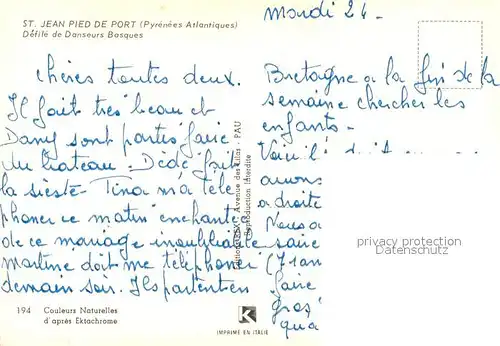 ST. JEAN PIED DE PORT (Pyrénées Atlantiques)
Défilé de Danseurs Basques
chères toutes deux.
Il fait très beau et
Dany sont parties faire
du bateau. Dédé fait
la sieste. Tina m'a télé
phoner ce matin enchantée
de ce mariage inoubliable
martine doit me téléphoner
demain soir. Ils partent en
194 Couleurs Naturelles
d'après Ektachrome
Avenue des Lilas - PAU
Reproduction Interdite
K
IMPRIMÉ EN ITALIE
mardi 24 -
Bretagne a la fin de la
semaine chercher les
enfants -
Voici l'
avons
a droite
Nous a
faire
gros
qua
privacy protection
Datenschutz